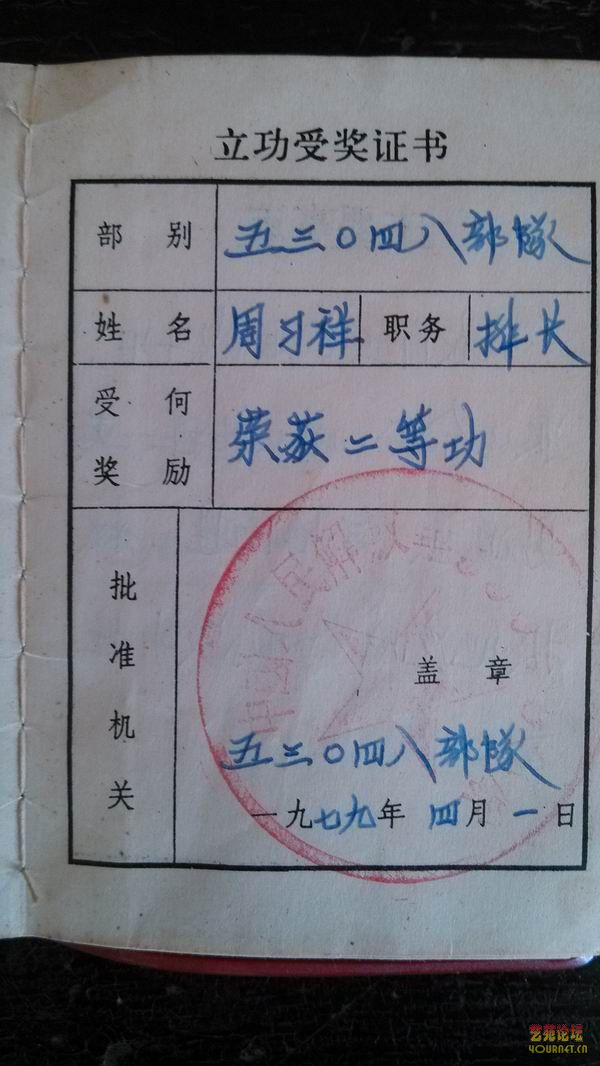 立功受奖证书
部别 五三〇四八部隊
姓名 周习祥 职务 排长
受何奖励 荣获二等功
批准机关
盖章
五三〇四八部隊
一九七九年四月一日
艺苑论坛
YOURNET.CN